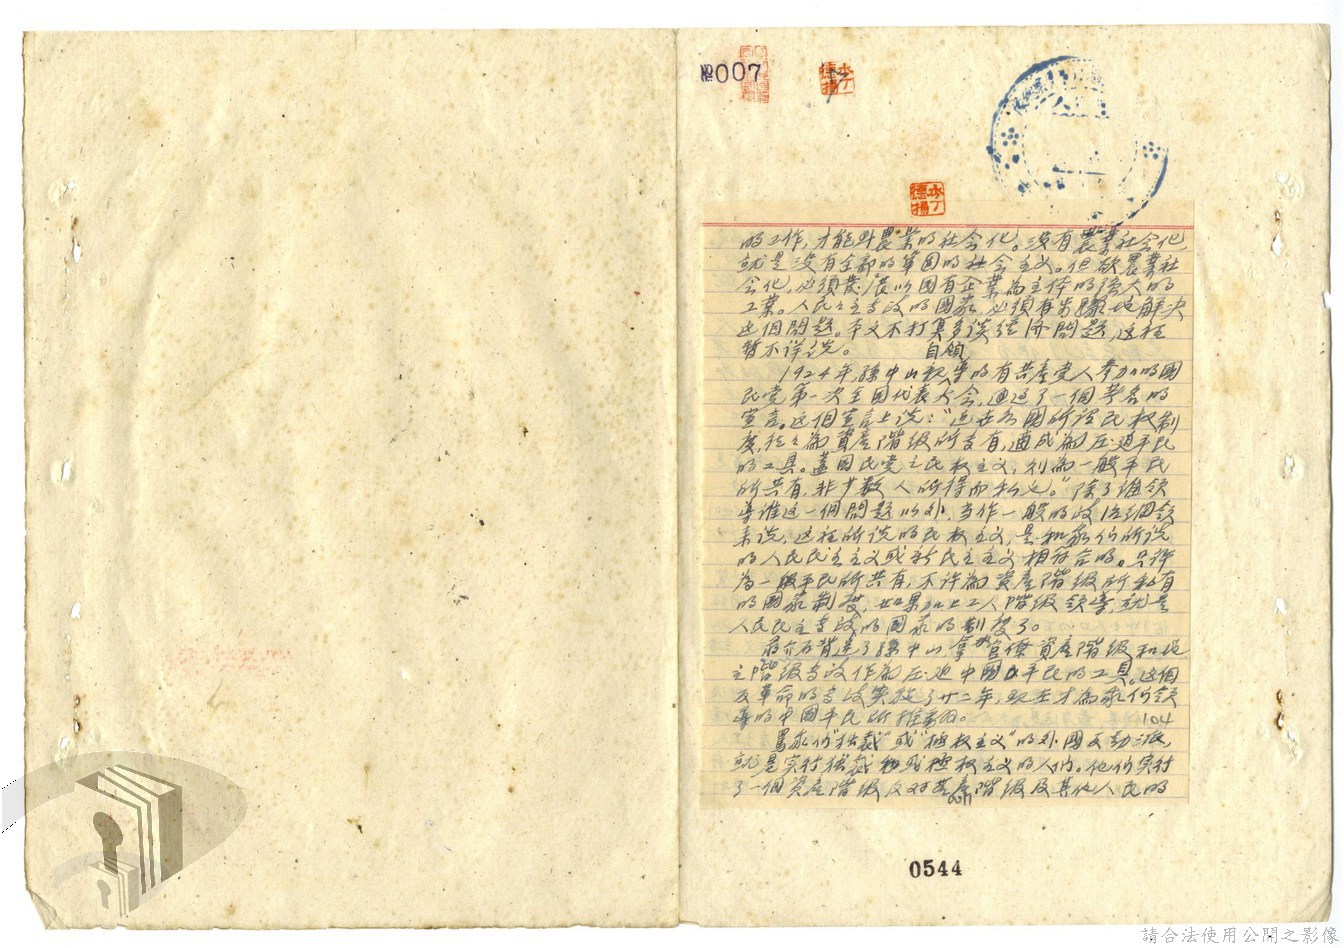 №007
李丁
德揚
李丁
德揚
的工作,才能与農業的社会化。没有農業社会化,
就是没有全部的鞏固的社会主义。但欲農業社
会化,必須發展以国有企業為主体的强大的
工業。人民民主專政的國家必須有步驟地解決
这個問題。本文不打算多谈經济問題,这裡
暫不详说。
自領
1924年,孫中山親導的有共產党人参加的國
民党第一次全国代表大会,通过了一個著名的
宣言。这個宣言上说:“近世各國所谓民权制
度,往々為資產階級所专有,適成為压迫平民
的工具。蓋國民党之民权主义,則為一般平民
所共有,非少数人所得而私也。”除了谁領
導谁这一個問題以外,当作一般的政治綱領
来说,这裡所说的民权主义,是和我们所说
的人民民主主义或新民主主义相符合的。只许
為一般平民所共有,不许為資產階級所私有
的國家制度,如果加上工人階級領導,就是
人民民主專政的國家的制度了。
蒋介石背叛了孫中山,拿官僚資產階級和地
主階級專政作為压迫中國平民的工具。这個
反革命的專政实施了廿二年,现在才為我们領
導的中國平民所推翻。 104
罵我们“独裁”或“極权主义”的外國反动派,
就是实行独裁和或極权主义的人们。他们实行
了一個資產階級对無產階級及其他人民的
0544
請合法使用公開之影像